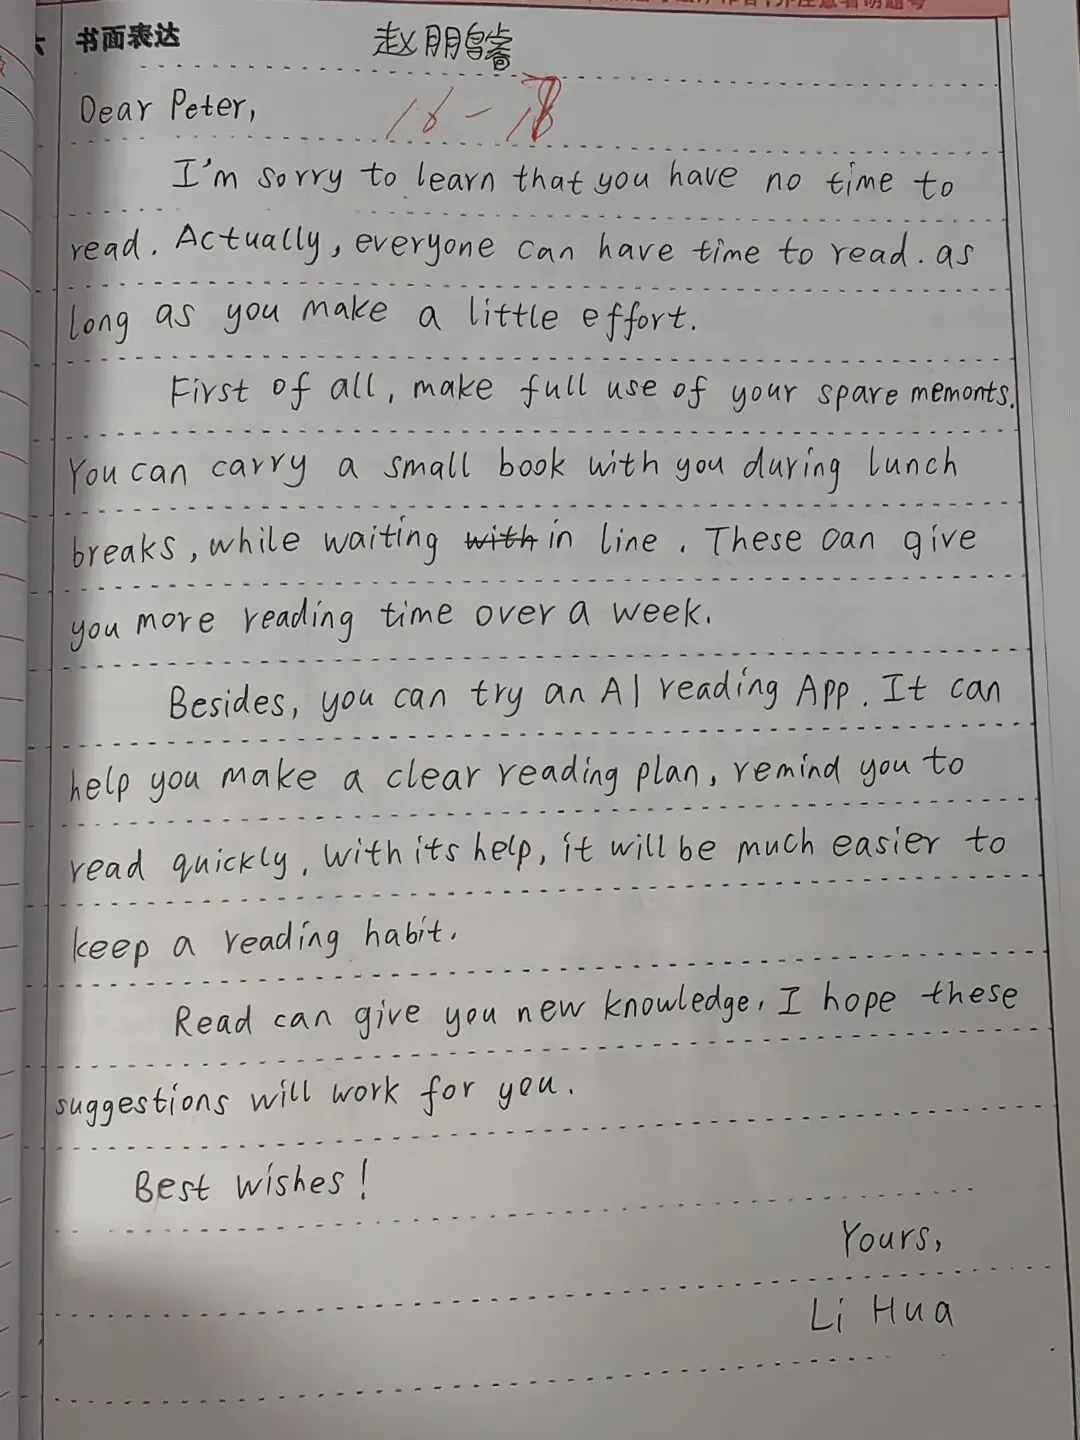 书面表达 赵朋
Dear Peter,
16-18
I'm sorry to learn that you have no time to
read. Actually, everyone can have time to read. as
long as you make a little effort.
First of all, make full use of your spare memonts.
You can carry a small book with you during lunch
breaks, while waiting with in line. These can give
you more reading time over a week.
Besides, you can try an AI reading App. It can
help you make a clear reading plan, remind you to
read quickly. With its help, it will be much easier to
keep a reading habit.
Read can give you new knowledge, I hope these
suggestions will work for you.
Best wishes!
Yours,
Li Hua